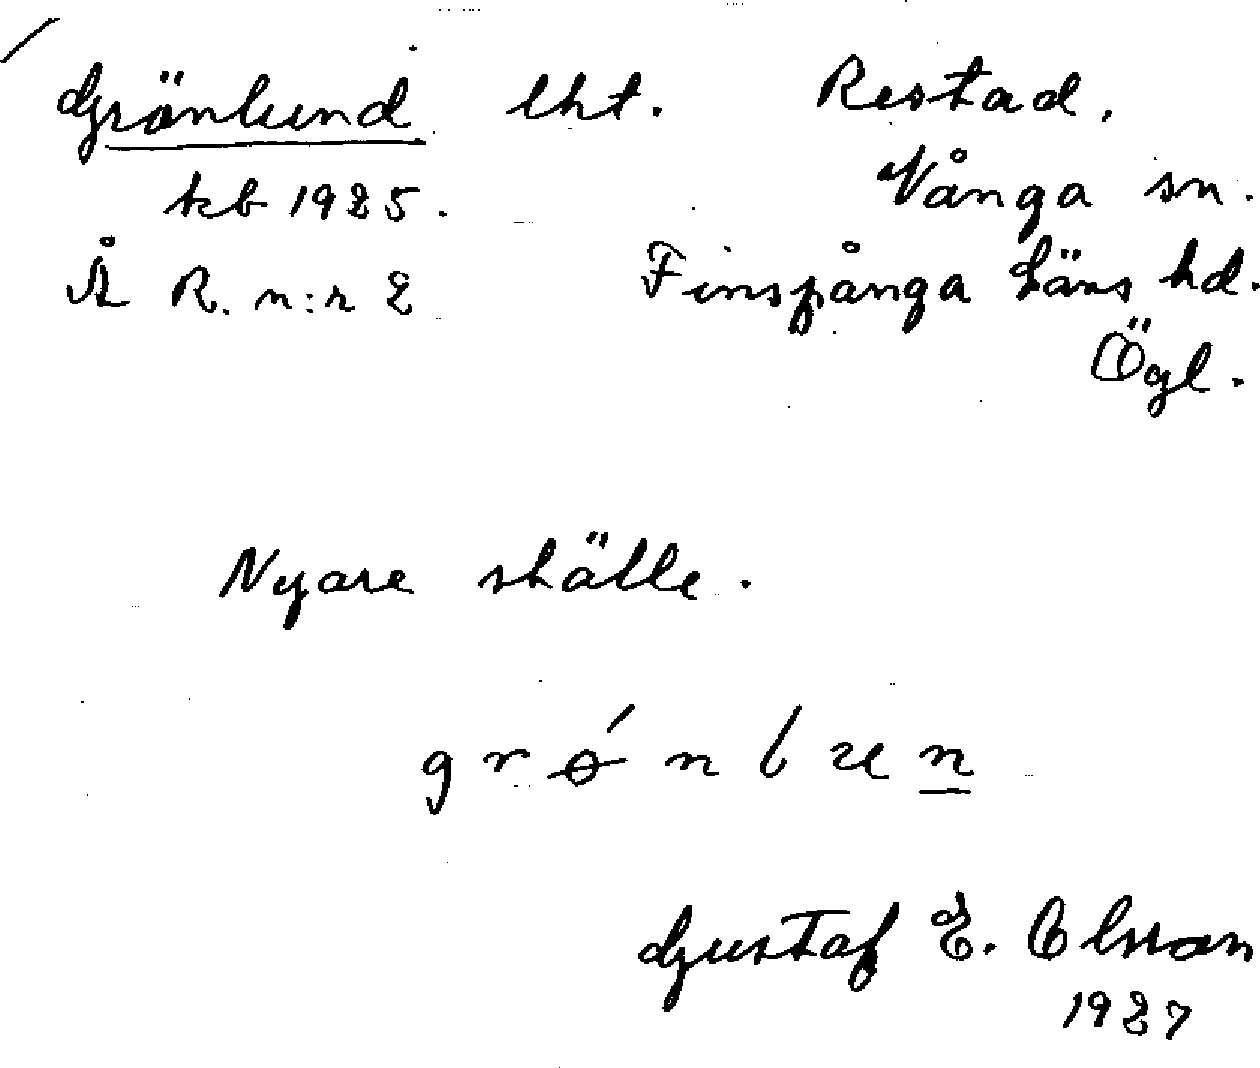 Grönlund lht. Restad.
kb 1925. Vånga sn.
Å R. n:r 2 Finspånga Läns hd.
Ögl.
Nyare ställe.
grǿnlun
Gustaf E. Olsson
1927